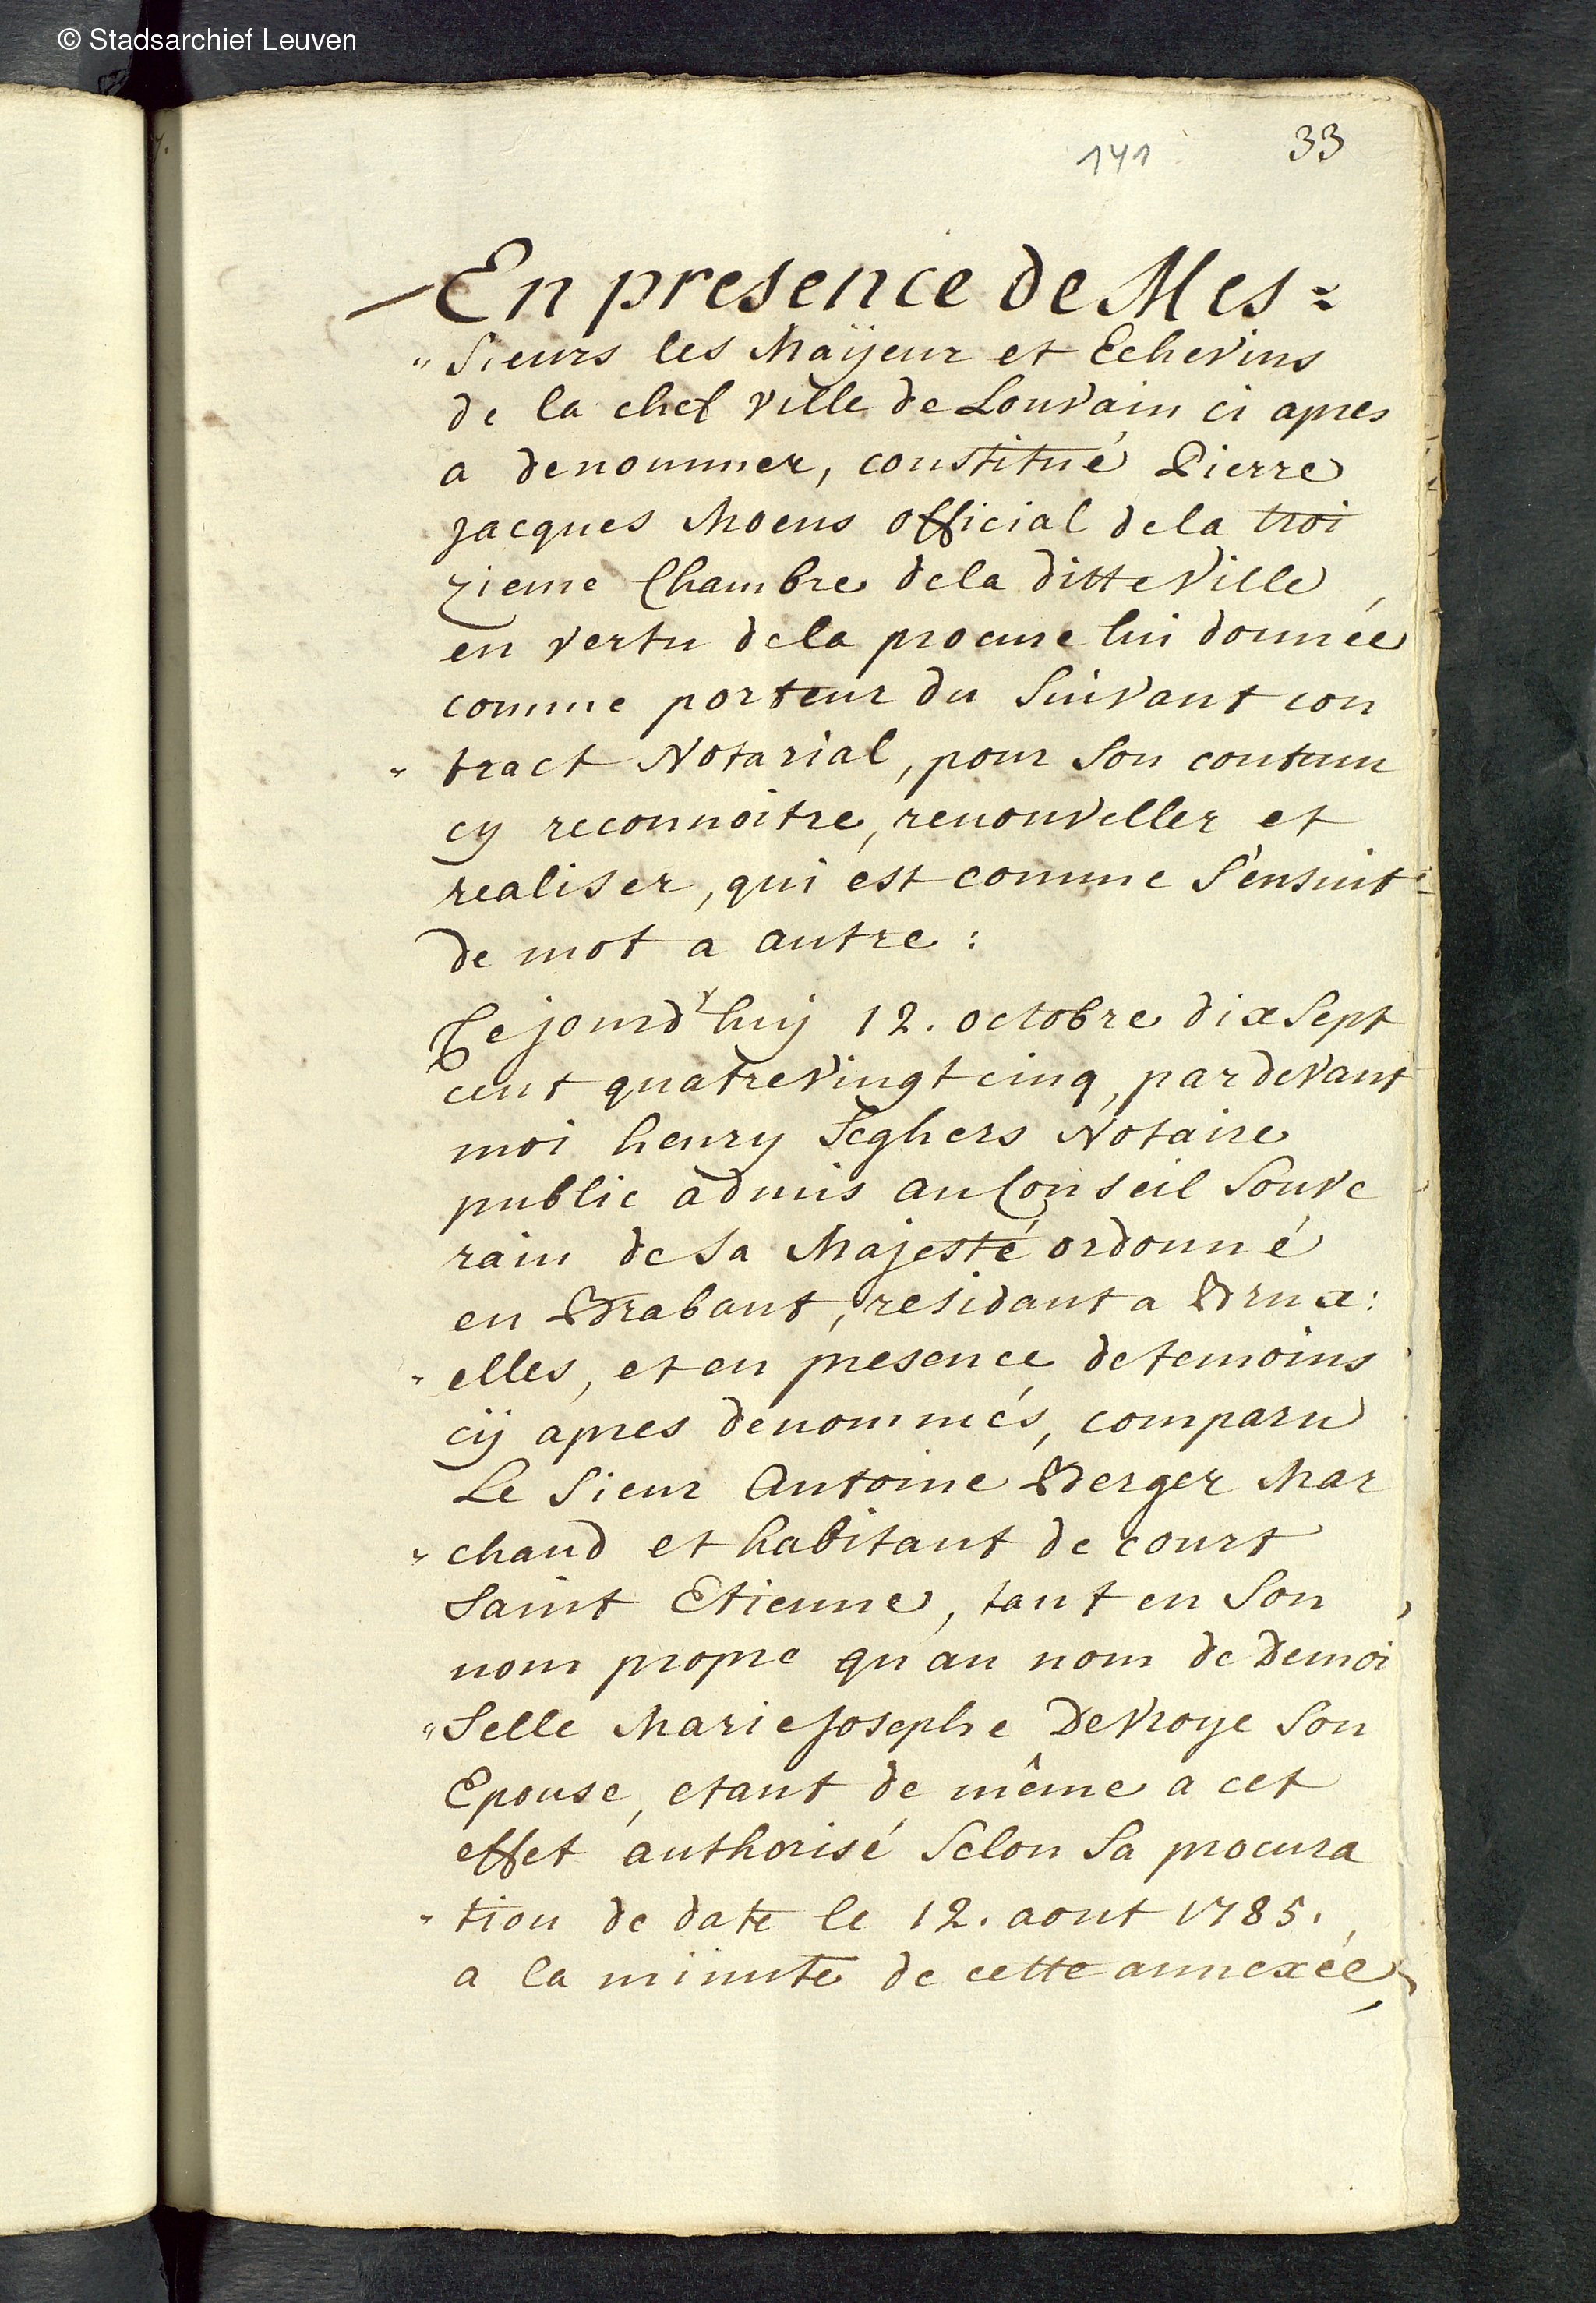 © Stadsarchief Leuven
141 33
En presence de Mes=
"Sieurs les Maÿeur et Echevins
de la chef ville de Louvain ci apres
a denommer, constitué Pierre
jacques Moens official dela troi
zieme Chambre dela ditte Ville,
en vertu dela procure lui donnée
comme porteur du Suivant con
"tract Notarial, pour Son contenu
cy reconnoitre, renouveller et
realiser, qui est comme S'ensuit
de mot a autre:
Cejourd'huÿ 12. octobre dix Sept
cent quatrevingt cinq, pardevant
moi henry Seghers Notaire
public admis au Conseil Souve
rain de Sa Majesté ordonné
en Brabant, residant a Brux:
"elles, et en presence de temoins
cÿ apres denommés, comparu
Le Sieur Antoine Berger Mar
"chand et habitant de court
Saint Etienne, tant en Son
nom propre qu'au nom de Demoi
"Selle Marie Josephe DeVroye Son
Epouse, etant de même a cet
effet authorisé Selon Sa procura
"tion de date le 12. aout 1785.
a la minute de cette annexée,